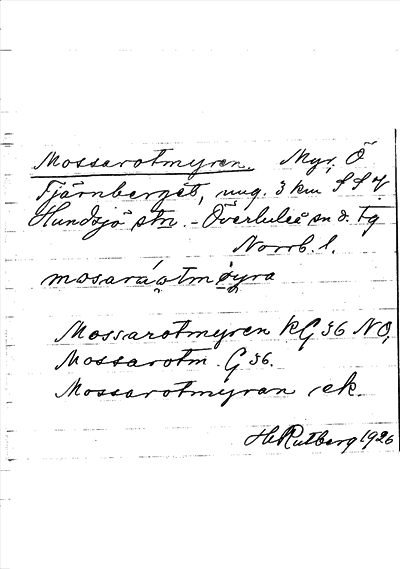 Mossarotmyren. Myr, Ö
Tjärnberget, ung. 3 km SSV
Hundsjö stn. - Överluleå sn o. tg
Norrb. l.
mosaráɷtmøyra
Mossarotmyren KG 36 NO,
Mossarotm. G 36.
Mossarotmyran ek.
H. Rutberg 1926